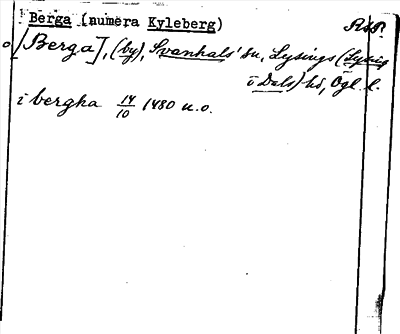 Berga (numera Kyleberg) RAP.
[Berga], (by), Svanhals' sn, Lysings (Lysing
i Dals) hd, Ögl. l.
i bergha 14/10 1480 u.o.